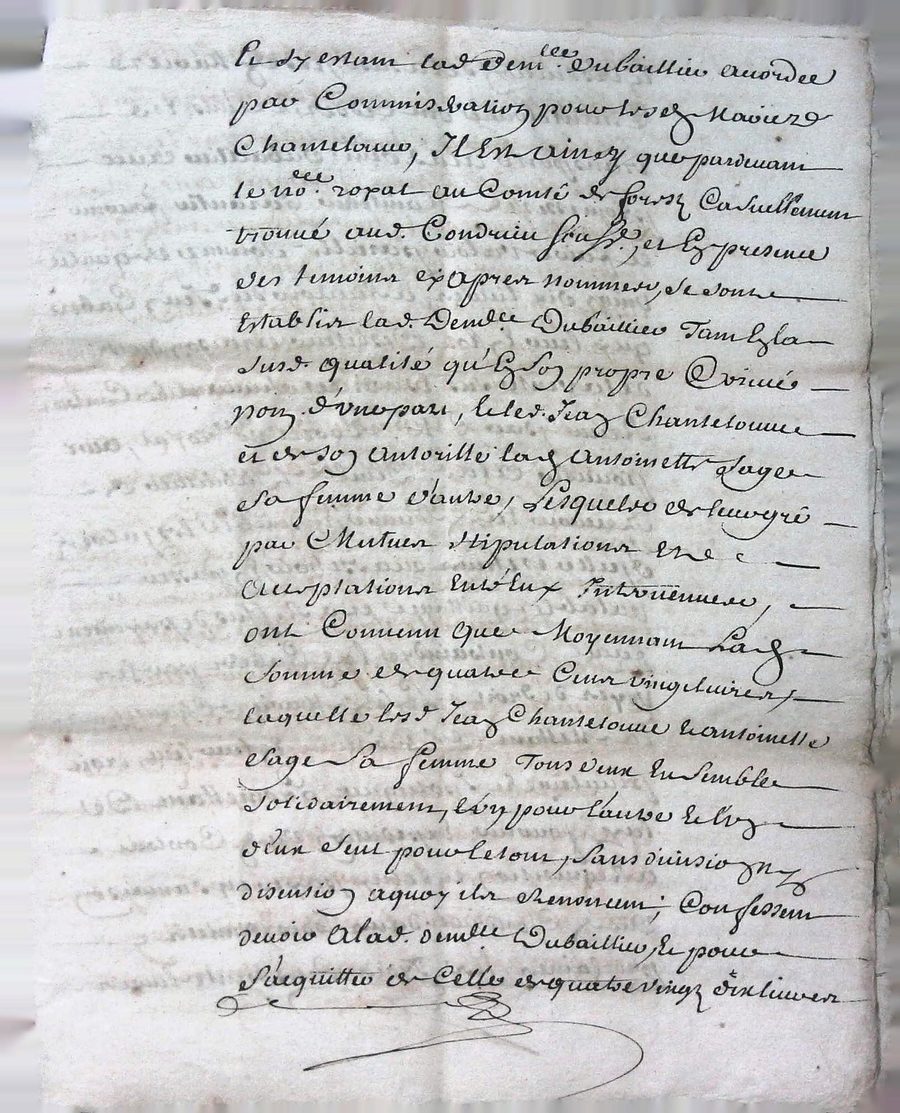 Et s'y estant lad. dem.lle Dubaillier acordée
par Commiseration pour lesd mariez
Chantelouve, Il Est ainsy que pardevant
le no.re royal au Comté de forestz Casuellement
trouvé aud. Condrieu soussé., et En presence
des temoins cy apres nommes, se sont
Establis lad. Demlle Dubaillier Tant En la
susd. qualité qu'En son propre Et privé
nom d'une part, Et led. Jean Chantelouve
et de son autoritté lad antoinette sage
sa femme d'autre, Lesquels de leur gré
par Mutues stipulations et
acceptations Entr'Eux Intervenues,
ont Convenu que Moyennant Lad
somme de quatre Cens vingt livres,
laquelle lesd Jean Chantelouve et antoinette
sage sa femme Tous deux Ensemble
solidairement, l'un pour l'autre Et l'un
d'eux seul pour le tout, sans division ny
discution a quoy ils Renoncent; Confessent
devoir a lad. demlle Dubaillier, Et pour
s'acquitter de Celle de quatre vingt dix livres